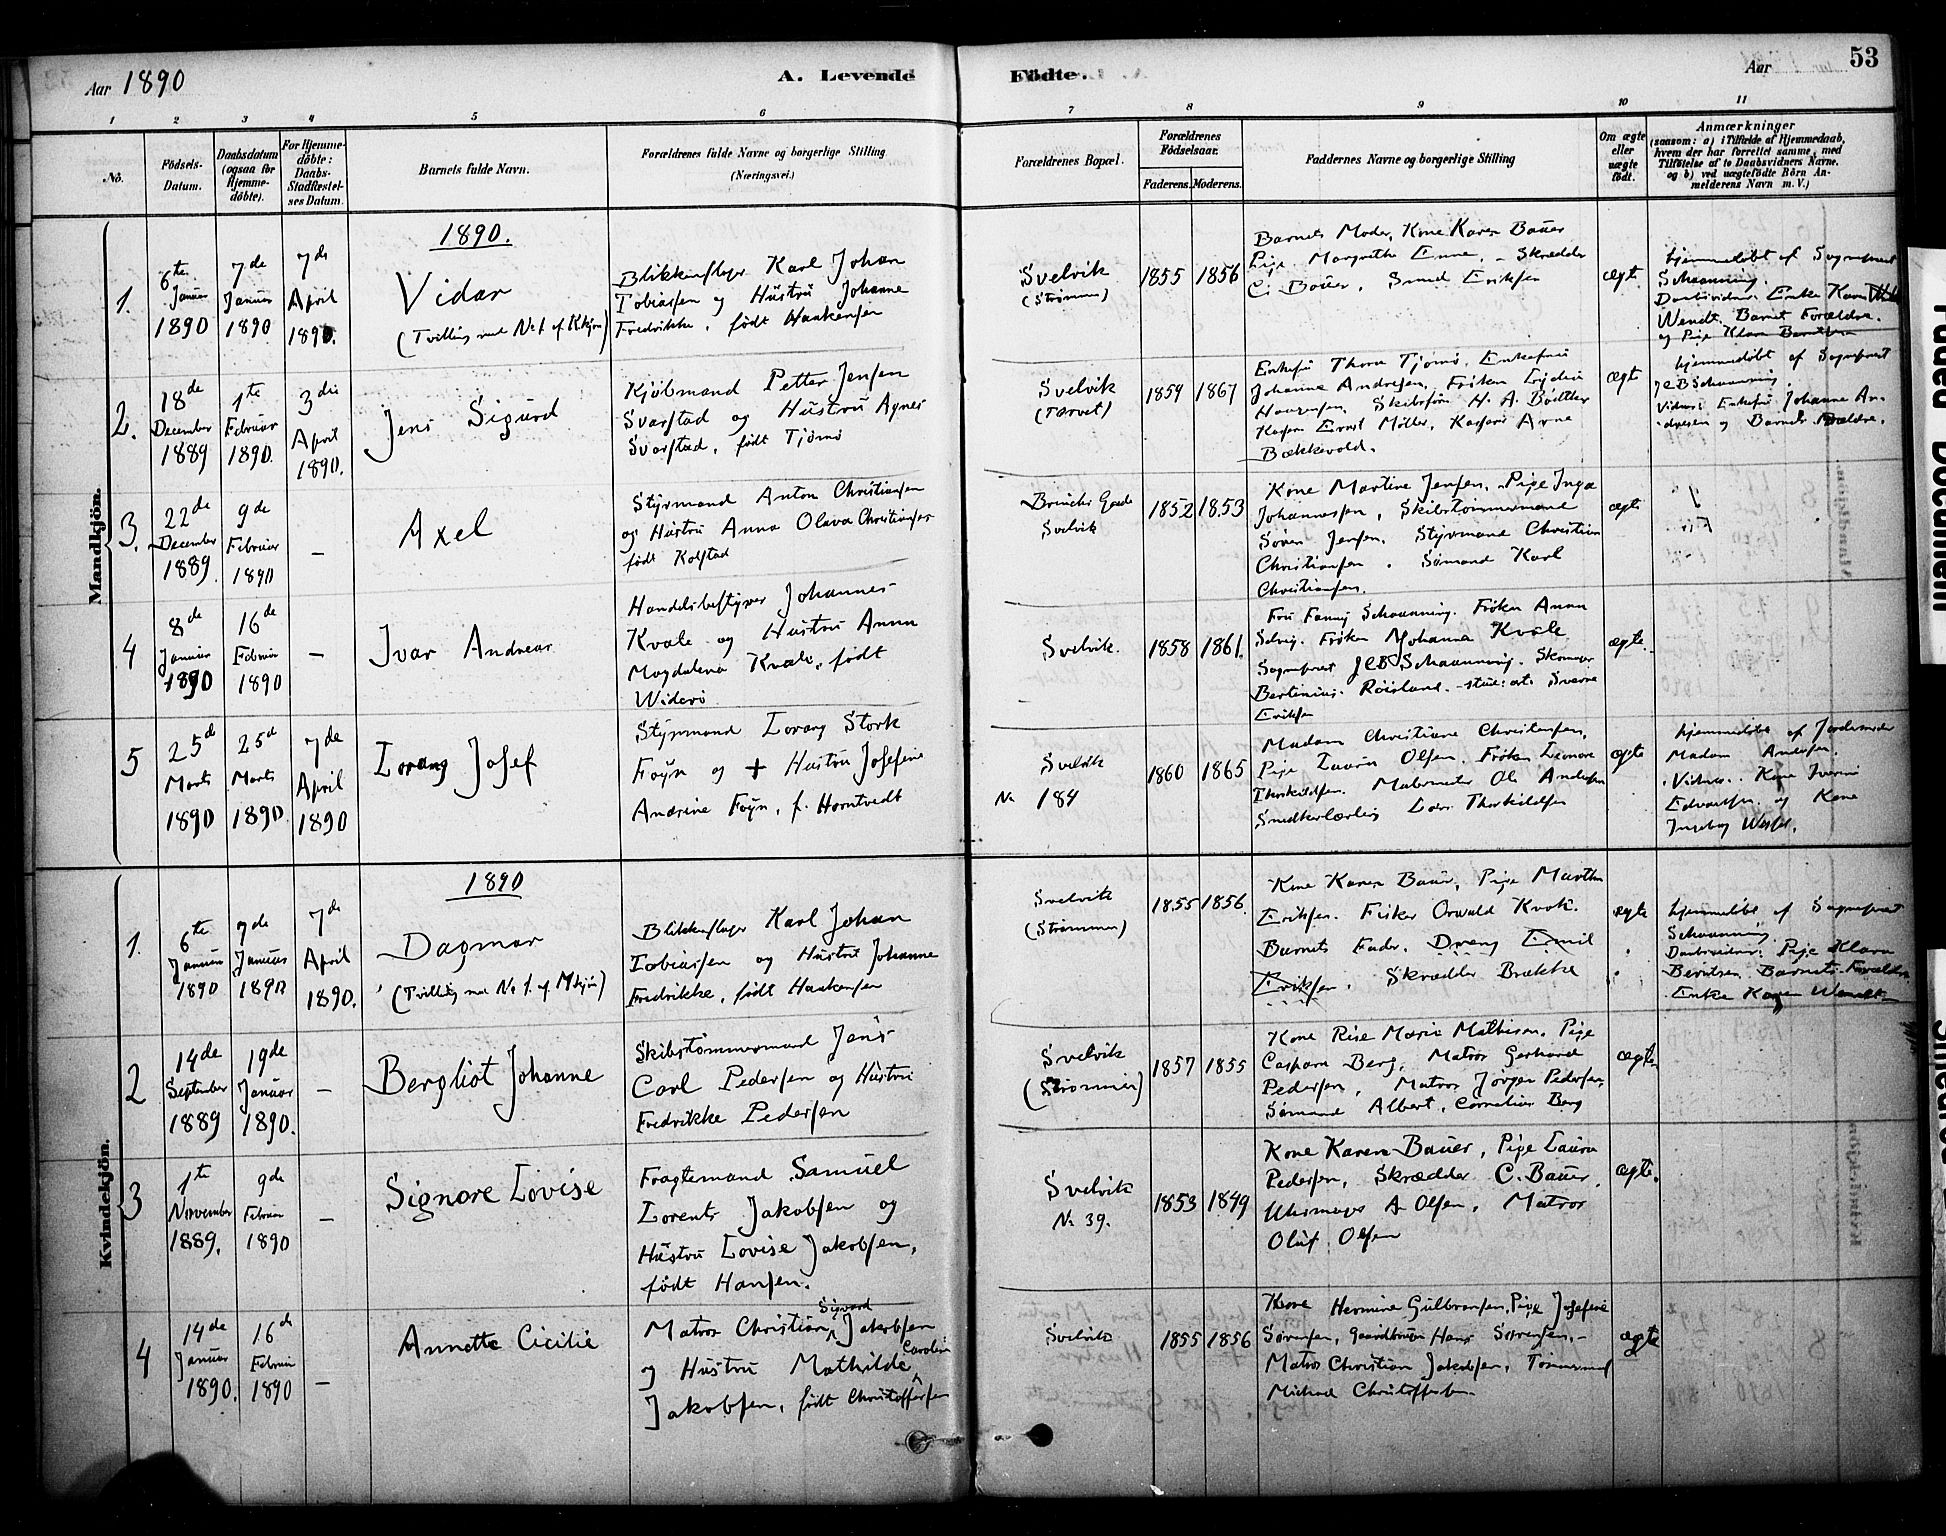 Aar 1890
A. Levende Födte.
Aar
53
1 2 3 4 5 6 7 8 9 10 11
No.
Födsels-
Datum.
Daabsdatum
(ogsaa for
Hjemme-
döbte).
For Hjemme-
döbte:
Daabs-
Stadfæstel-
ses Datum.
Barnets fulde Navn.
Forældrenes fulde Navne og borgerlige Stilling
(Næringsvei.)
Forældrenes Bopæl.
Forældrenes
Födselsaar.
Faderens. Moderens.
Faddernes Navne og borgerlige Stilling
Om ægte
eller
uægte
födt.
Anmærkninger
(saasom: a) i Tilfælde af Hjemmedaab,
hvem der har forrettet samme, med
Tilföielse af to Daabsvidners Navne.
og b) ved uægtefödte Börn An-
melderens Navn m. V.)
Mandkjön.
1890.
1.
6te
Januar
1890
7de
Januar
1890
7de
April
1890.
Vidar
(Tvilling med No 1. af Kkjøn)
Blikkenslager Karl Johan
Tobiassen og Hustru Johanne
Fredrikke, født Haakensen
Svelvik
(Strømm)
1855 1856
Barnets Moder, Kone Karen Bauer
Pige Margrethe Enne, - Skrædder
C. Bauer, Smed Eriksen
ægte
hjemmedøbt af Sogneprest
Schaanning.
Daabsvidner: Enke Karen
Wendt. Barnets Forældre.
og Pige Klara Berntsen
2.
18de
December
1889
1ste
Februar
1890.
3die
April
1890.
Jens Sigurd
Kjøbmand Petter Jensen
Svarstad og Hustru Agnes
Svarstad, født Tjømø
Svelvik
(Torvet)
1859 1867
Enkefru Thora Tjømø, Enkefrue
Johanne Andresen, Frøken
Skibsfører H. A. Bødtker
Ernst Møller, Arne
Bækkevold.
ægte
hjemmedøbt af Sogneprest
JCBSchaanning.
Vidner: Enkefru Johanne An-
dresen og Barnets Forældre.
3.
22de
December
1889.
9de
Februar
1890
–
Axel
Styrmand Anton Christiansen
og Hustru Anna Olava Christiansen
født Kolstad
Gade
Svelvik
1852 1853
Kone Martine Jensen, Pige Inga
Johannessen, Skibstømmermand
Søren Jensen, Styrmand Christian
Christiansen. Sømand Karl
Christiansen.
ægte
4
8de
Januar
1890
16de
Februar
1890
–
Ivar Andreas
Handelsbestyrer Johannes
Kvale og Hustru Anna
Magdalena Kvale, født
Widerø
Svelvik.
1858 1861.
Fru Fanny Schaanning. Frøken Anna
Solvig. Frøken Johanna Kvale.
Sogneprest JCBSchaanning.
Bertinius Røisland. stud: art. Sverre
Eriksen
ægte.
5
25d
Marts
1890
25d
Marts
1890.
7de
April
1890
Lorang Josef
Styrmand Lorang Stork
Foyn og + Hustru Josefine
Andrine Foyn, f. Horntvedt
Svelvik
No 184
1860 1865
Madam Christiane Christensen,
Pige Laura Olsen. Frøken Leonore
Thorkildsen. Malermester Ole Andersen
Snedkerlærling Lars Thorkildsen
ægte
hjemmedøbt af Jordemoder
Madam Andersen.
Vidner. Kone
Edvardsen. og Kone
Ingeborg
Kvindekjön.
1890
1.
6te
Januar
1890
7de
Januar
1890
7de
April
1890.
Dagmar
(Tvilling med No 1. af Mkjøn)
Blikkenslager Karl Johan
Tobiassen og Hustru Johanne
Fredrikke, født Haakensen
Svelvik
(Strømmen)
1855 1856.
Kone Karen Bauer, Pige Martha
Eriksen. Fisker Osvald
Barnets Fader. Dreng Emil
Eriksen. Skrædder Brække
ægte
hjemmedøbt af Sogneprest
Schaanning
Daabsvidner: Pige Klara
Berntsen Barnets Forældre
Enke Karen Wendt
2
14de
September
1889
19de
Januar
1890.
–
Bergliot Johanne
Skibstømmermand Jens
Carl Pedersen og Hustru
Fredrikke Pedersen
Svelvik
(Strømmen)
1857 1855
Kone Rise Marie Mathisen. Pige
Caspara Berg, Matros Gerhard
Pedersen, Matros Jørgen Pedersen,
Sømand Albert, Cornelius Berg
ægte
3
1ste
November
1889.
9de
Februar
1890
–
Signore Lovise
Fragtemand Samuel
Lorents Jakobsen og
Hustru Lovise Jakobsen,
født Hansen.
Svelvik
No 39.
1853 1849
Kone Karen Bauer, Pige Laura
Pedersen, Skrædder C. Bauer,
Uhrmager A Olsen, Matros
Oluf Olsen
ægte.
4
14de
Januar
1890.
16de
Februar
1890
–
Annette Cicilie
Sigvard
Matros Christian Jakobsen
og Hustru Mathilde Caroline
Jakobsen, født Christoffersen
Svelvik
1855 1856
Kone Hermine Gulbransen, Pige Josefine
Sørensen, Gaardbruger Hans Sørensen, -
Matros Christian Jakobsen, Tømmermand
Michael Christoffersen
ægte